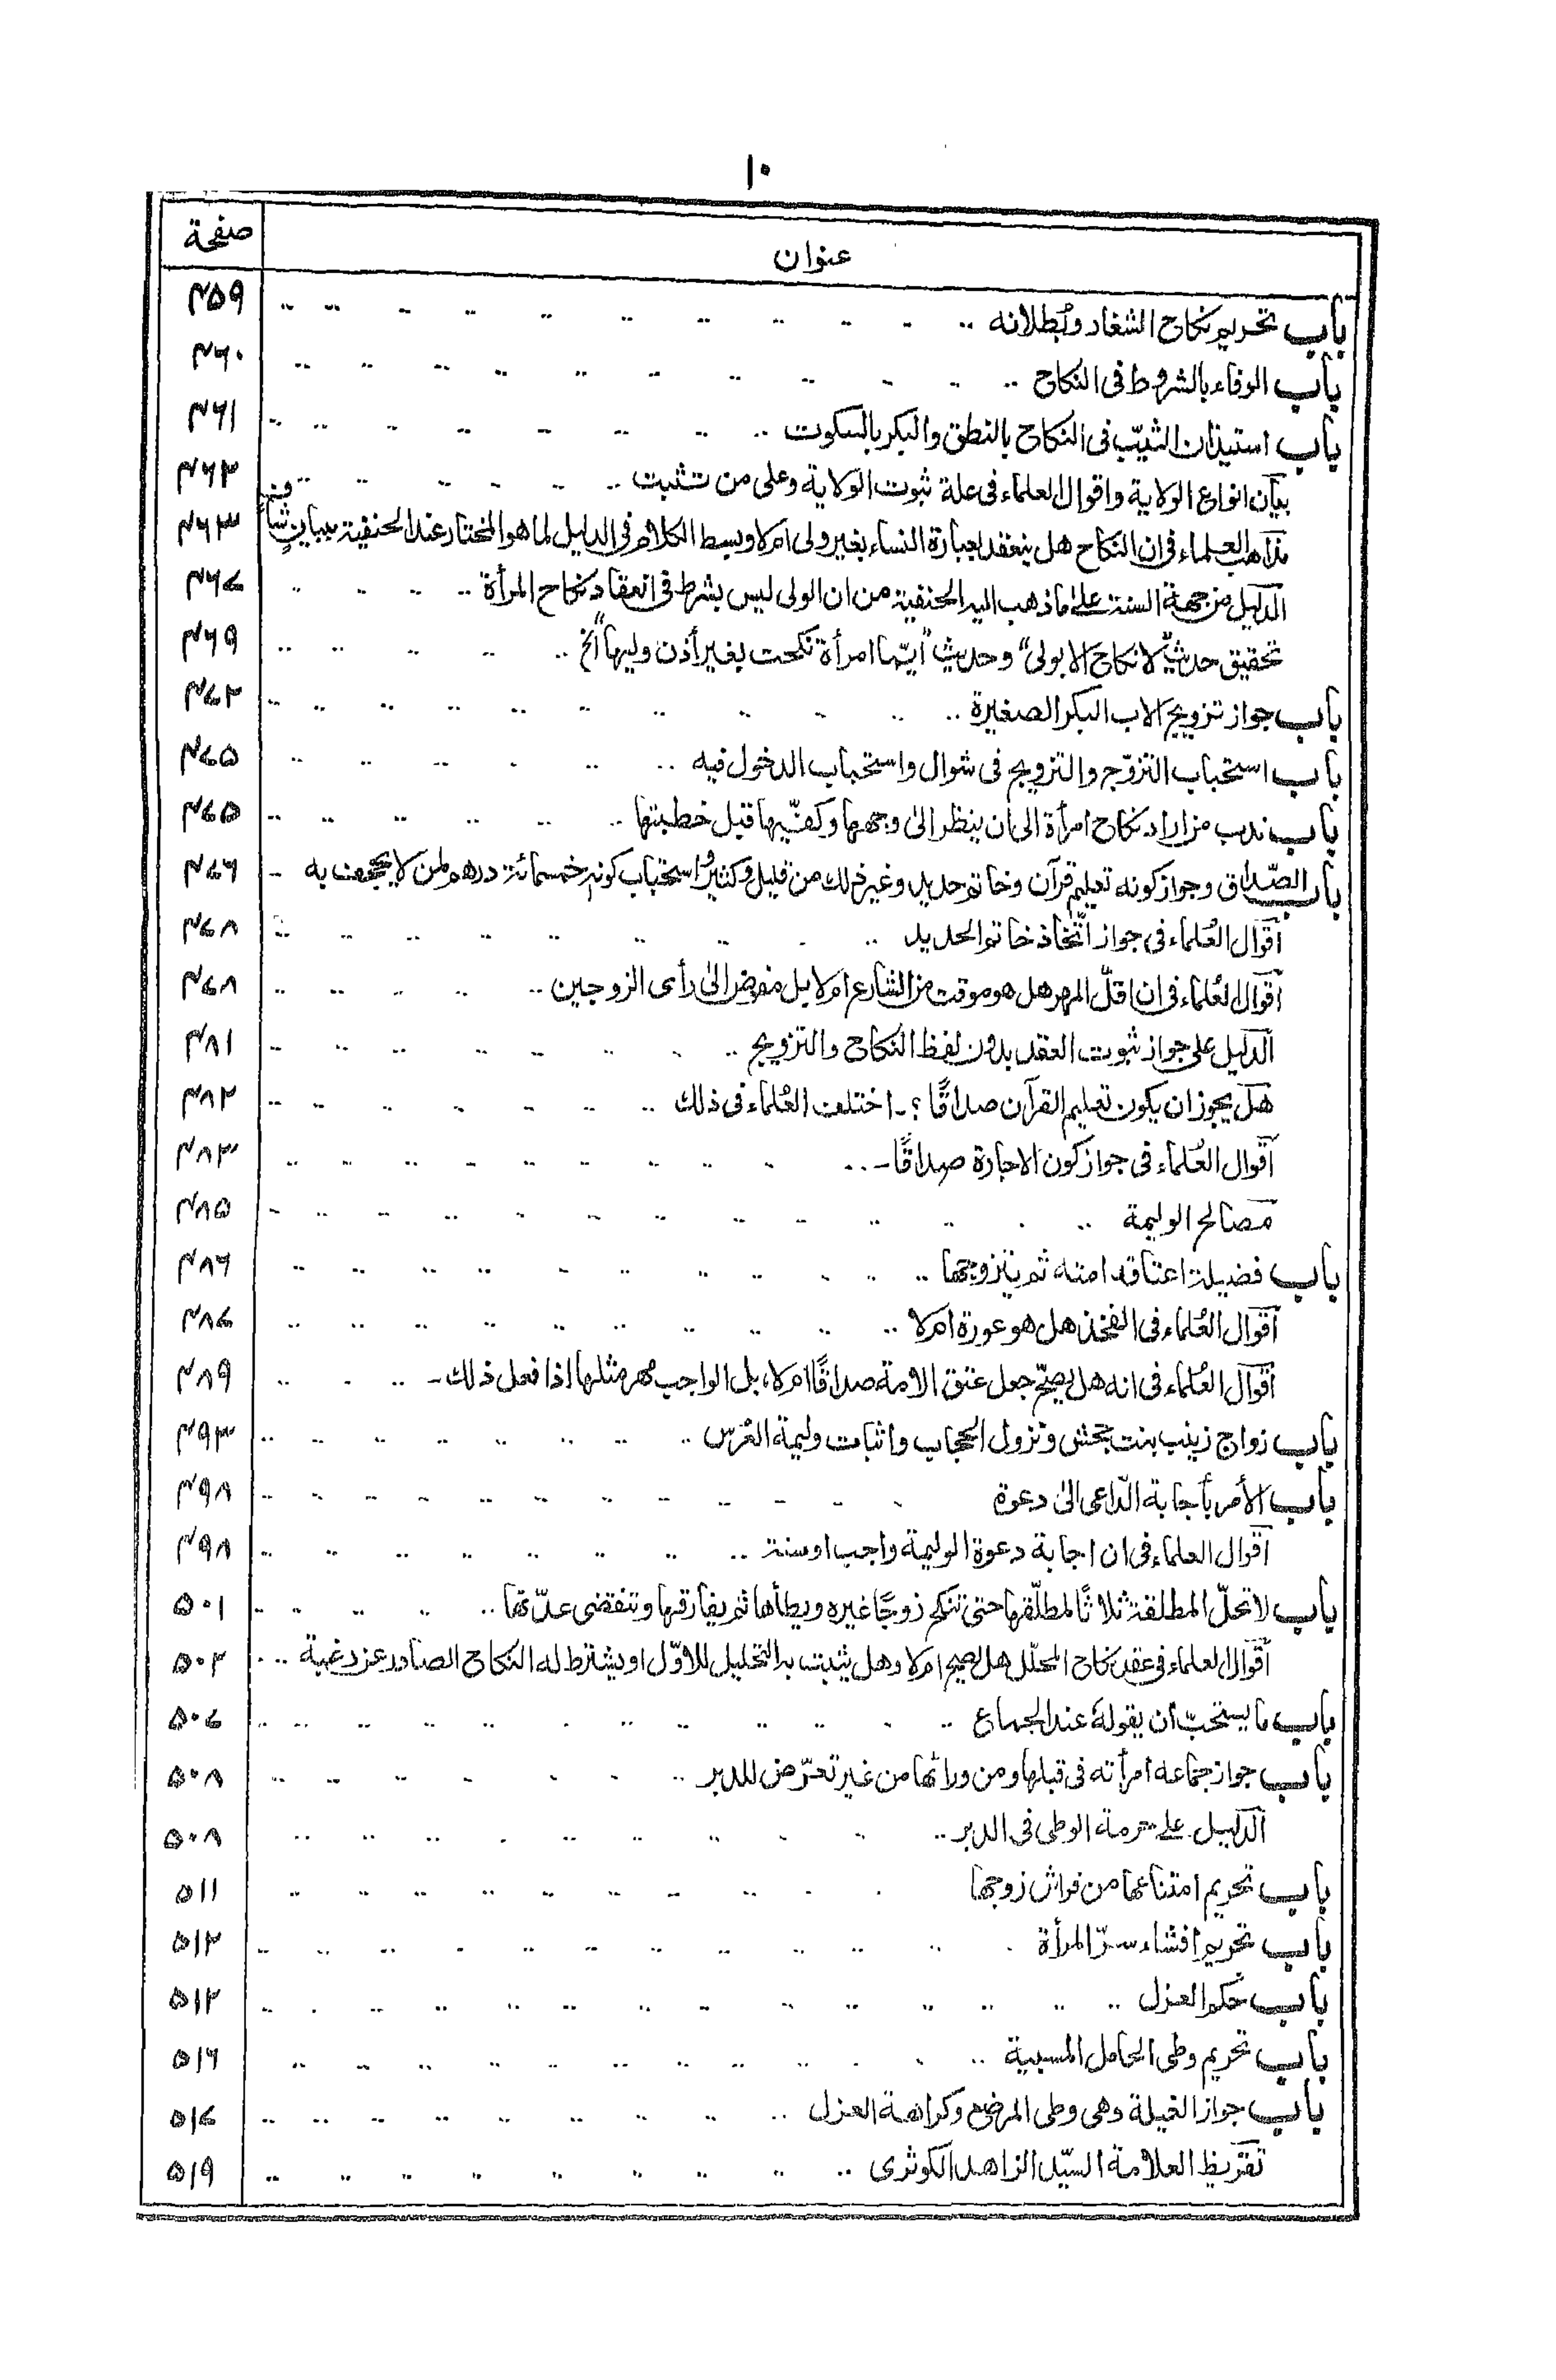 ۱۰
عنوان صفحة
باب تحريم نكاح الشغار وبُطلانه ۴۵۹
باب الوفاء بالشروط فى النكاح ۴۶۰
باب استيذان الثيّب فى النكاح بالنطق والبكر بالسكوت ۴۶۱
بيان انواع الولاية واقوال العلماء فى علة ثبوت الولاية وعلى من تثبت ۴۶۲
مذاهب العلماء فى ان النكاح هل ينعقد بعبارة النساء بغير ولى ام لا وبسط الكلام فى الدليل لما هو المختار عند الحنفية ببيان شاف ۴۶۳
الدليل من جهة السنة على ما ذهب اليه الحنفية من ان الولى ليس بشرط فى انعقاد نكاح المرأة ۴۶۷
تحقيق حديث "لا نكاح الا بولى" وحديث "ايّما امرأة نكحت بغير أذن وليها" الخ ۴۶۹
باب جواز تزويج الاب البكر الصغيرة ۴۷۲
باب استحباب التزوّج والتزويج فى شوال واستحباب الدخول فيه ۴۷۵
باب ندب من اراد نكاح امرأة الى ان ينظر الىٰ وجهها وكفّيها قبل خطبتها ۴۷۵
باب الصّداق وجواز كونه تعليم قرآن وخاتم حديد وغير ذلك من قليل وكثير واستحباب كونه خمسمائة درهم لمن لا يجحف به ۴۷۶
اقوال العُلماء فى جواز اتّخاذ خاتم الحديد ۴۷۸
اقوال العُلماء فى ان اقلّ المهر هل هو موقت من الشارع ام لا بل مفوض الىٰ رأى الزوجين ۴۷۸
الدليل على جواز ثبوت العقد بدون لفظ النكاح والتزويج ۴۸۱
هل يجوز ان يكون تعليم القرآن صداقًا ؟ ـ اختلف العُلماء فى ذلك ۴۸۲
اقوال العُلماء فى جواز كون الاجارة صداقًا ـ ۴۸۳
مصالح الوليمة ۴۸۵
باب فضيلة اعتاقه امته ثم يتزوجها ۴۸۶
اقوال العُلماء فى الفخذ هل هو عورة ام لا ۴۸۷
اقوال العُلماء فى انه هل يصحّ جعل عتق الامة صداقًا ام لا، بل الواجب مهر مثلها اذا فعل ذلك ـ ۴۸۹
باب زواج زينب بنت جحش ونزول الحجاب واثبات وليمة العُرس ۴۹۳
باب الأمر بأجابة الدّاعى الىٰ دعوة ۴۹۸
اقوال العلماء فى ان اجابة دعوة الوليمة واجب او سنة ۴۹۸
باب لا تحلّ المطلقة ثلاثًا لمطلّقها حتى تنكح زوجًا غيره ويطأها ثم يفارقها وتنقضى عدّتها ۵۰۱
اقوال العلماء فى عقد نكاح المحلّل هل يصح ام لا وهل يثبت به التحليل للاوّل او يشترط له النكاح الصادر عن رغبة ۵۰۲
باب ما يستحبّ أن يقولهٗ عند الجماع ۵۰۷
باب جواز جماعه امرأته فى قبلها ومن ورائها من غير تعرّض للدبر ۵۰۸
الدليل على حرمة الوطى فى الدبر ۵۰۸
باب تحريم امتناعها من فراش زوجها ۵۱۱
باب تحريم افشاء سرّ المرأة ۵۱۲
باب حُكم العزل ۵۱۲
باب تحريم وطى الحامل المسبية ۵۱۶
باب جواز الغيلة وهى وطى المرضع وكراهة العزل ۵۱۷
تقريظ العلامة السيّد الزاهد الكوثرى ۵۱۹